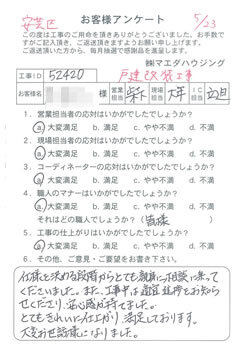 安芸区
お客様アンケート
5/23
この度は工事のご用命を頂きありがとうございました。お手数で
すがご記入頂き、ご返送頂きますようお願い申し上げます。
ご返送頂いた方から、毎月抽選で感謝品を進呈します。
㈱マエダハウジング
工事ID 52420 戸建改装工事
お客様名 様 営業担当 現場担当 IC担当
1. 営業担当者の応対はいかがでしたでしょうか?
ⓐ大変満足 b. 満足 c. やや不満 d. 不満
2. 現場担当者の応対はいかがでしたでしょうか?
ⓐ大変満足 b. 満足 c. やや不満 d. 不満
3. コーディネーターの応対はいかがでしたでしょうか?
ⓐ大変満足 b. 満足 c. やや不満 d. 不満
4. 職人のマナーはいかがでしたでしょうか?
ⓐ大変満足 b. 満足 c. やや不満 d. 不満
それはどの職人でしょうか?(皆様)
5. 工事の仕上がりはいかがでしたでしょうか?
ⓐ大変満足 b. 満足 c. やや不満 d. 不満
6. その他、ご意見・ご要望をお書き下さい。
仕様を決める段階からとても親身に相談に乗って
くださいました。また、工事中は適宜進捗をお知ら
せくださり、安心感が持てました。
とてもきれいに仕上がり、満足しております。
大変お世話様になりました。